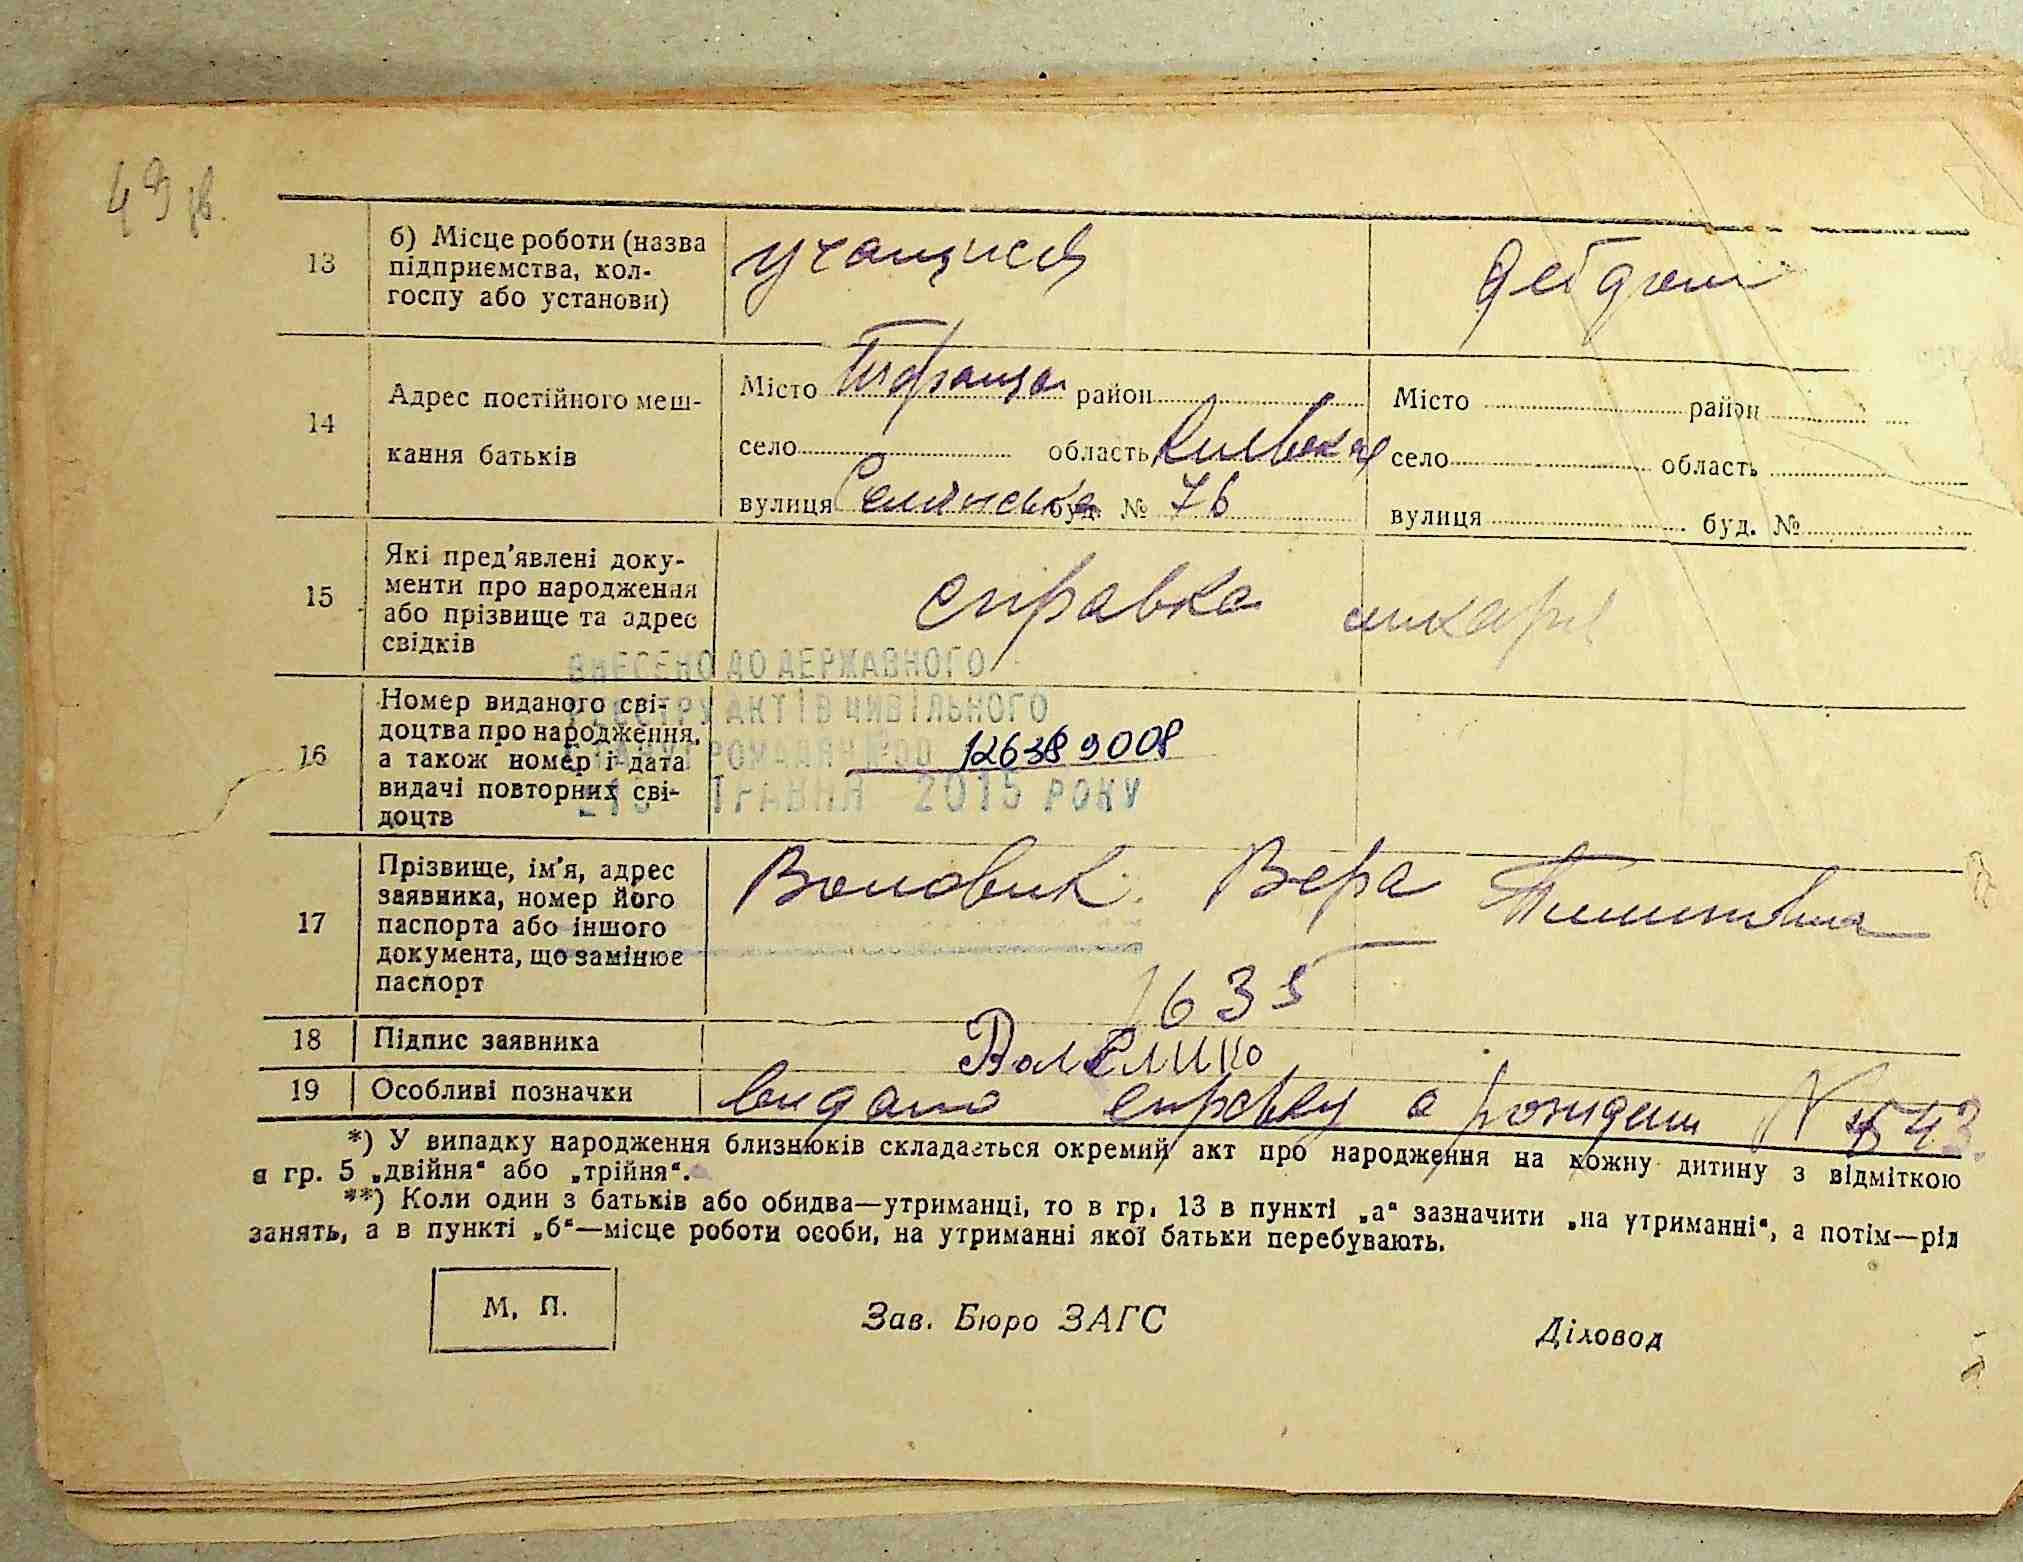 49 зв.
13
б) Місце роботи (назва
підприємства, кол-
госпу або установи)
учащися
14
Адрес постійного меш-
кання батьків
Місто район
село область Київська
вулиця буд. № 76
Місто район
село область
вулиця буд. №
15
Які пред'явлені доку-
менти про народження
або прізвище та адрес
свідків
справка
ВНЕСЕНО ДО ДЕРЖАВНОГО
РЕЄСТРУ АКТІВ ЦИВІЛЬНОГО
СТАНУ ГРОМАДЯН №00 126389008
ТРАВНЯ 2015 РОКУ
16
Номер виданого сві-
доцтва про народження,
а також номер і дата
видачі повторних сві-
доцтв
17
Прізвище, ім'я, адрес
заявника, номер його
паспорта або іншого
документа, що замінює
паспорт
Воловик Вера
1635
18
Підпис заявника
19
Особливі позначки
видано справку о рожидени N 543
*) У випадку народження близнюків складається окремий акт про народження на кожну дитину з відміткою
в гр. 5 „двійня“ або „трійня“.
**) Коли один з батьків або обидва—утриманці, то в гр. 13 в пункті „а“ зазначити „на утриманні“, а потім—рід
занять, а в пункті „б“—місце роботи особи, на утриманні якої батьки перебувають.
М. П.
Зав. Бюро ЗАГС
Діловод